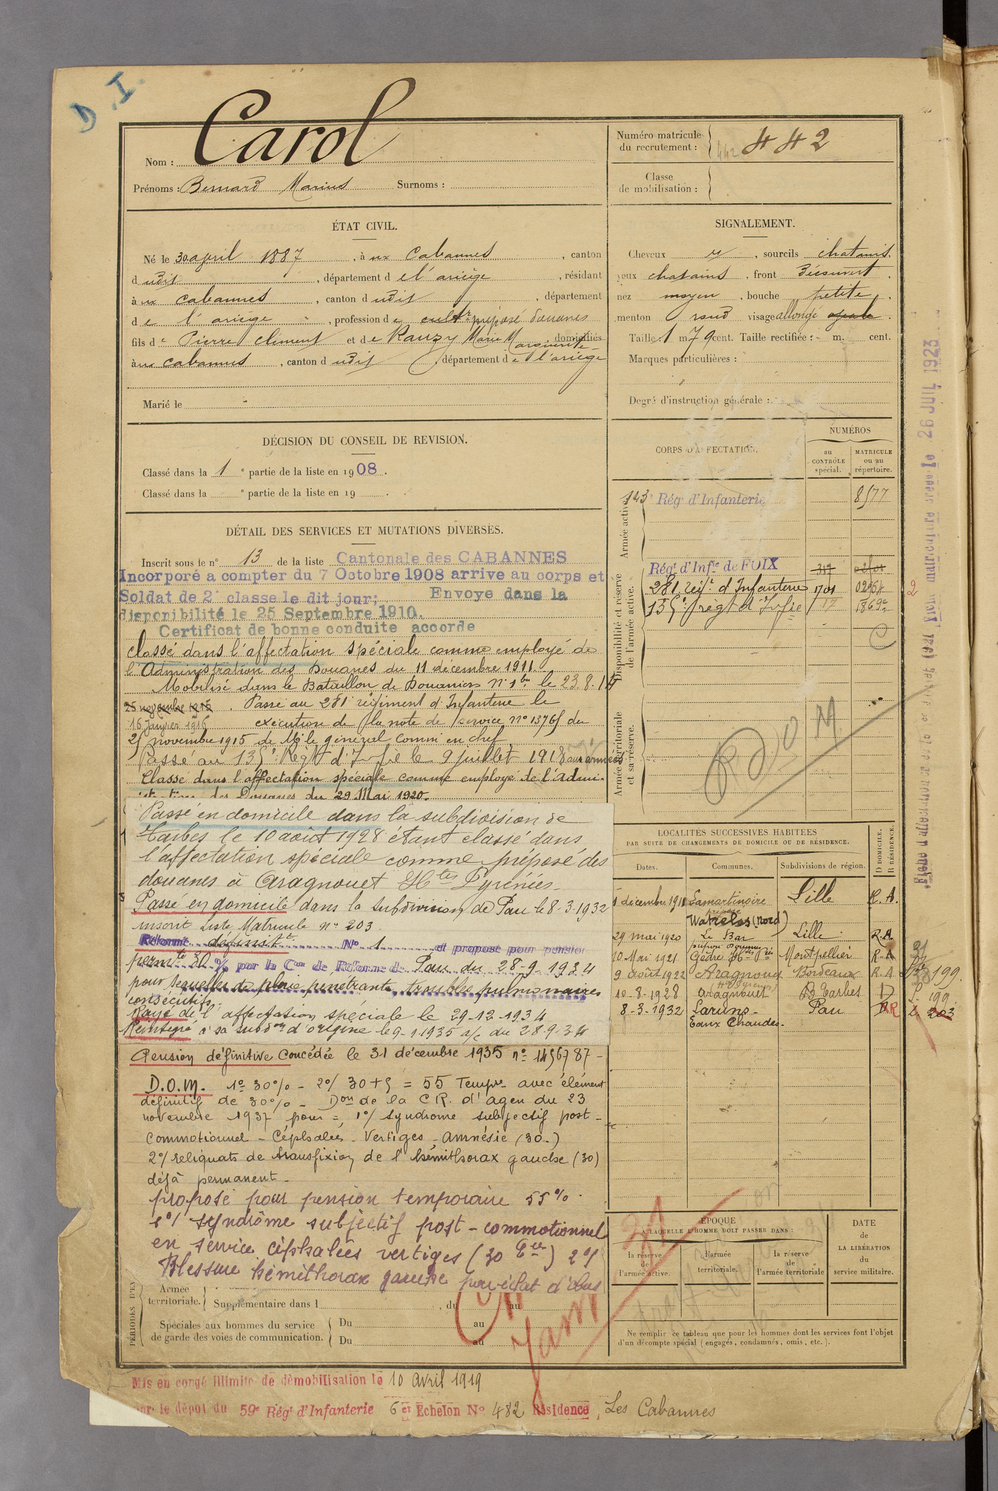 D.I.
Nom : Carol
Prénoms : Bernard Marius Surnoms :
Numéro matricule du recrutement : 442
Classe de mobilisation :
ÉTAT CIVIL.
Né le 30 april 1887, à ux Cabannes, canton
d udit, département de l'ariège, résidant
à ux cabannes, canton d udit, département
de l'ariège, profession de cultr préposé douanes
fils de Pierre Clément et de Rauzy Marie Marguerite domiciliés
à ux cabannes, canton d udit département de l'ariège
Marié le
SIGNALEMENT.
Cheveux , sourcils chatains.
yeux chatains, front Découvert.
nez moyen, bouche petite,
menton rond visage allongé ovale.
Taille 1 m 79 cent. Taille rectifiée : m. cent.
Marques particulières :
Degré d'instruction générale :
DÉCISION DU CONSEIL DE REVISION.
Classé dans la 1e partie de la liste en 1908.
Classé dans la e partie de la liste en 19 .
DÉTAIL DES SERVICES ET MUTATIONS DIVERSES.
Inscrit sous le n° 13 de la liste Cantonale des CABANNES
Incorporé a compter du 7 Octobre 1908 arrive au corps et
Soldat de 2e classe le dit jour; Envoye dans la
disponibilité le 25 Septembre 1910.
Certificat de bonne conduite accorde
classé dans l'affectation spéciale comme employé de
l'Administration des Douanes du 11 décembre 1911.
Mobilisé dans le Bataillon de Douaniers n° 1bis le 23.8.15
25 novembre 1915. Passé au 281e régiment d'Infanterie le
16 janvier 1916 exécution de la note de service n° 13765 du
25 novembre 1915 de Mr le général Commt en chef
Passé au 135e Régt d'Infie le 9 juillet 1918 aux armées
Classé dans l'affectation spéciale comme employé de l'Admi-
istration des Douanes du 29 Mai 1920.
Passé en domicile dans la subdivision de
Tarbes le 10 août 1928 étant classé dans
l'affectation spéciale comme préposé des
douanes à Aragnouet Htes Pyrénées
Passé en domicile dans la subdivision de Pau le 8-3-1932
inscrit Liste Matricule n° 203
Réformé définitivt N° 1 et proposé pour pension
permte 30 % par la Con de Réforme de Pau du 28-9-1934
pour séquelles de plaie pénétrante, troubles pulmonaires
consécutifs.
Rayé de l'affectation spéciale le 29-12-1934
Réintégré sa subdon d'origine le 9-1-1935 a/c du 28.9.34
Pension définitive Concédée le 31 décembre 1935 n° 1456787
D.O.M. 1° 30% - 2% 30+5 = 55 Tempre avec élément
définitif de 30% - Don de la C.R. d'agen du 23
novembre 1937 pour = 1°/ Syndrome subjectif post-
commotionnel - Céphalées - Vertiges, amnésie (30.)
2°/ reliquats de transfixion de l'hémithorax gauche (30)
déjà permanent.
proposé pour pension temporaire 55%.
1°/ syndrôme subjectif post-commotionnel
en service céphalées vertiges (30 %) 2°/
Blessure hémithorax gauche par éclat d'obus
CORPS D'AFFECTATION.
NUMÉROS
au CONTRÔLE spécial.
MATRICULE ou au répertoire.
Armée active.
143e Rég. d'Infanterie 8577
Disponibilité et réserve de l'armée active.
Rég. d'Infie de FOIX
281 régt d'Infanterie 1701
135e régt d'Infie
Armée territoriale et sa réserve.
D O M
LOCALITÉS SUCCESSIVES HABITÉES
PAR SUITE DE CHANGEMENTS DE DOMICILE OU DE RÉSIDENCE.
Dates. Communes. Subdivisions de région. D. DOMICILE. R. RÉSIDENCE.
1 décembre 1911 Lamartinoire Lille R.A.
Watrelos (Nord)
29 mai 1920 Le Bar Lille R.A
10 Mai 1921 Gèdre Htes Pées Montpellier R.A
9 Août 1922 Aragnouet Bordeaux R.A 199.
10-8-1928 Aragnouet Tarbes D 199
8-3-1932 Laruns- Pau DR 203
Eaux Chaudes.
ÉPOQUE
À LAQUELLE L'HOMME DOIT PASSER DANS :
la réserve de l'armée active.
l'armée territoriale.
la réserve de l'armée territoriale
DATE DE LA LIBÉRATION du service militaire.
Ne remplir ce tableau que pour les hommes dont les services font l'objet
d'un décompte spécial (engagés, condamnés, omis, etc.).
PÉRIODES D'EX
Armée territoriale. Supplémentaire dans l , du au
Spéciales aux hommes du service de garde des voies de communication. Du au
Du au
Mis en congé illimité de démobilisation le 10 Avril 1919
par le dépôt du 59e Rég. d'Infanterie 6e Echelon N° 482 Résidence, Les Cabannes
26 JUIL 1923